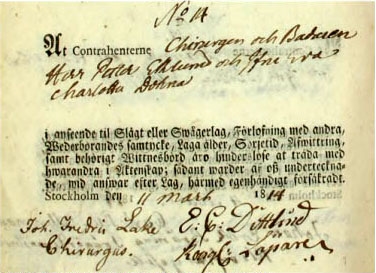 No 14
At Contrahenterne Chirurgen och Badaren
Herr Peter Eklund och Jfru Eva
Charlotta Dohna
i anseende til Slägt eller Swågerlag, Förlofning med andra,
Wederbörandes samtycke, Laga ålder, Sorgetid, Afwittring,
samt behörigt Wittnesbörd äro hinderslöse at träda med
hwarandra i Äktenskap; sådant warder af oß underteckna-
de, wid answar efter Lag, härmed egenhändigt försäkradt.
Stockholm den 11 Mars 1814
Joh. Fredric Lake E. C. Dittlind
Chirurgus. Kongl.